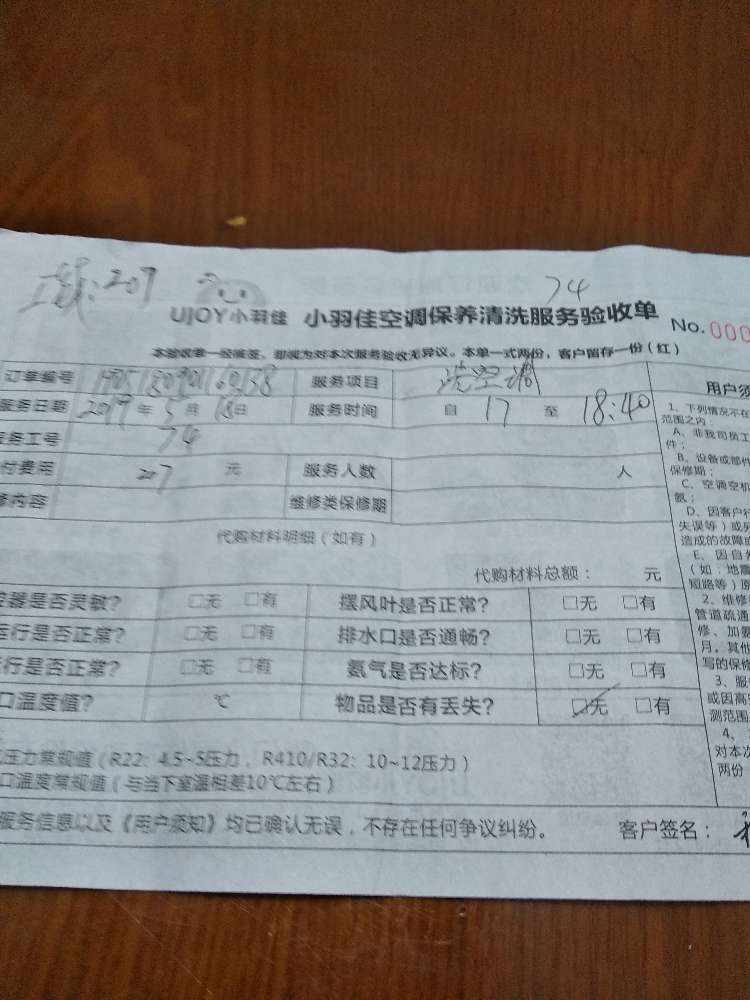 207 74
UJOY小羽佳 小羽佳空调保养清洗服务验收单 No.000
本验收单一经签签、即视为对本次服务验收无异议。本单一式两份,客户留存一份(红)
订单编号 服务项目 洗空调 用户须
服务日期 2019年5月18日 服务时间 自 17 至 18:40
务工号 74
付费用 207 元 服务人数 人
修内容 维修类保修期
代购材料明细(如有)
代购材料总额: 元
控器是否灵敏? □无 □有 摆风叶是否正常? □无 □有
运行是否正常? □无 □有 排水口是否通畅? □无 □有
行是否正常? □无 □有 氨气是否达标? □无 □有
口温度值? ℃ 物品是否有丢失? □无 □有
压力常规值(R22:4.5~5压力,R410/R32:10~12压力)
口温度常规值(与当下室温相差10℃左右)
服务信息以及《用户须知》均已确认无误,不存在任何争议纠纷。 客户签名:
1、下列情况不在
范围之内:
A、非我司员工
件;
B、设备或部件
保修期;
C、空调空机
氨;
D、因客户行
失误等)或另
造成的故障或
E、因自然
(如:地震
短路等)原
2、维修
管道疏通
修、加氨
月,其他
写的保修
3、服
或因高
测范围
4、
对本次
两份